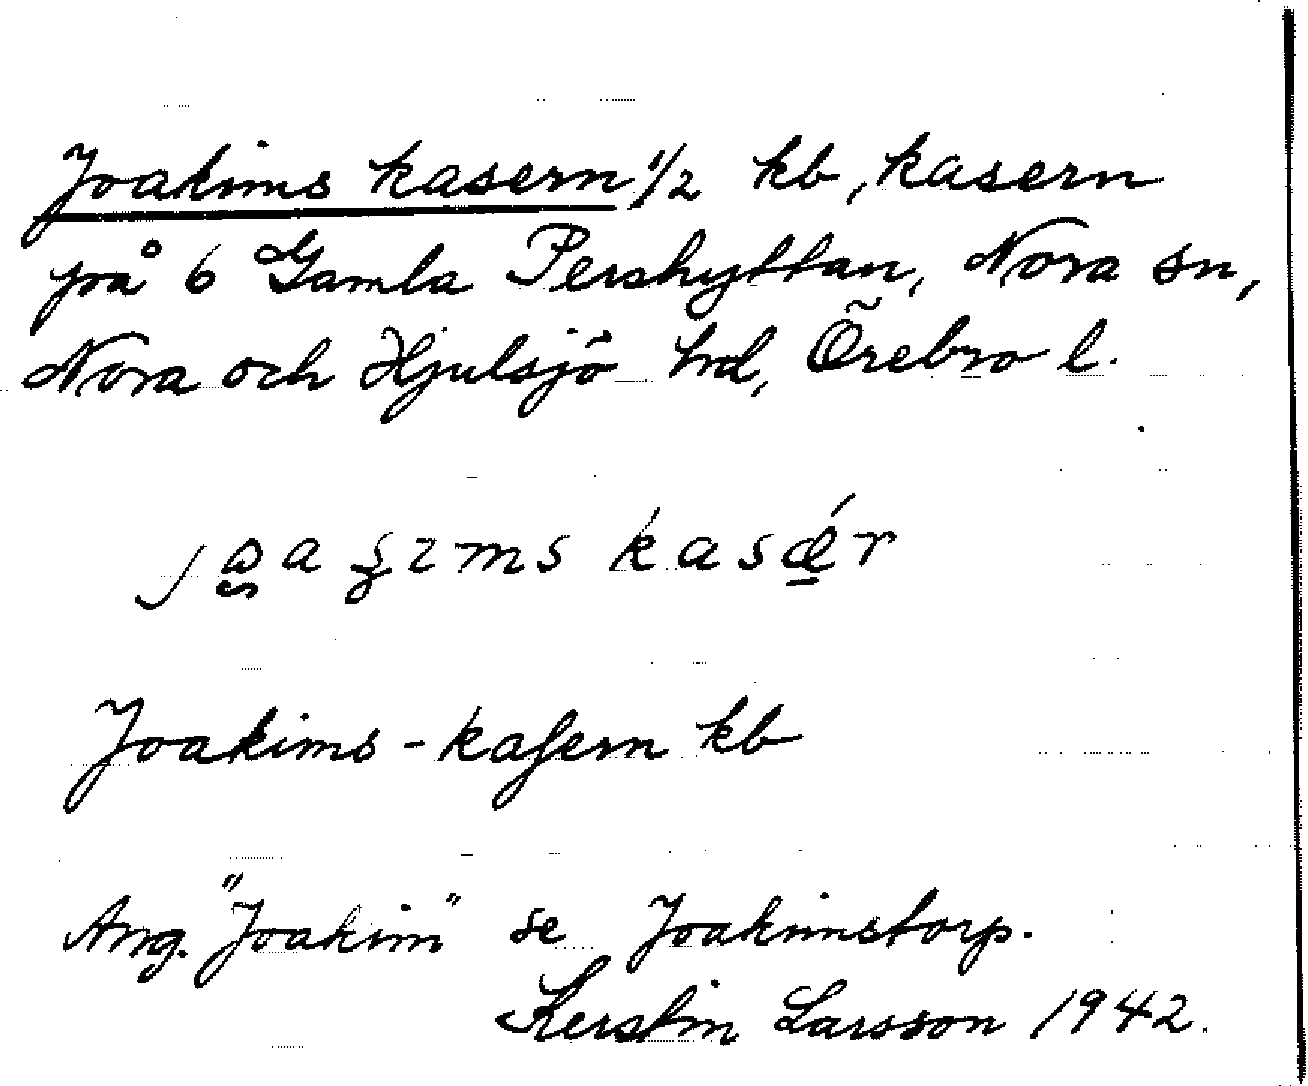 Joakims kasern 1/2 kb, kasern
på 6 Gamla Pershyttan, Nora sn,
Nora och Hjulsjö hd, Örebro l.
kasǽr
Joakims-kasern kb
Ang. "Joakim" se Joakimstorp.
Kerstin Larsson 1942.